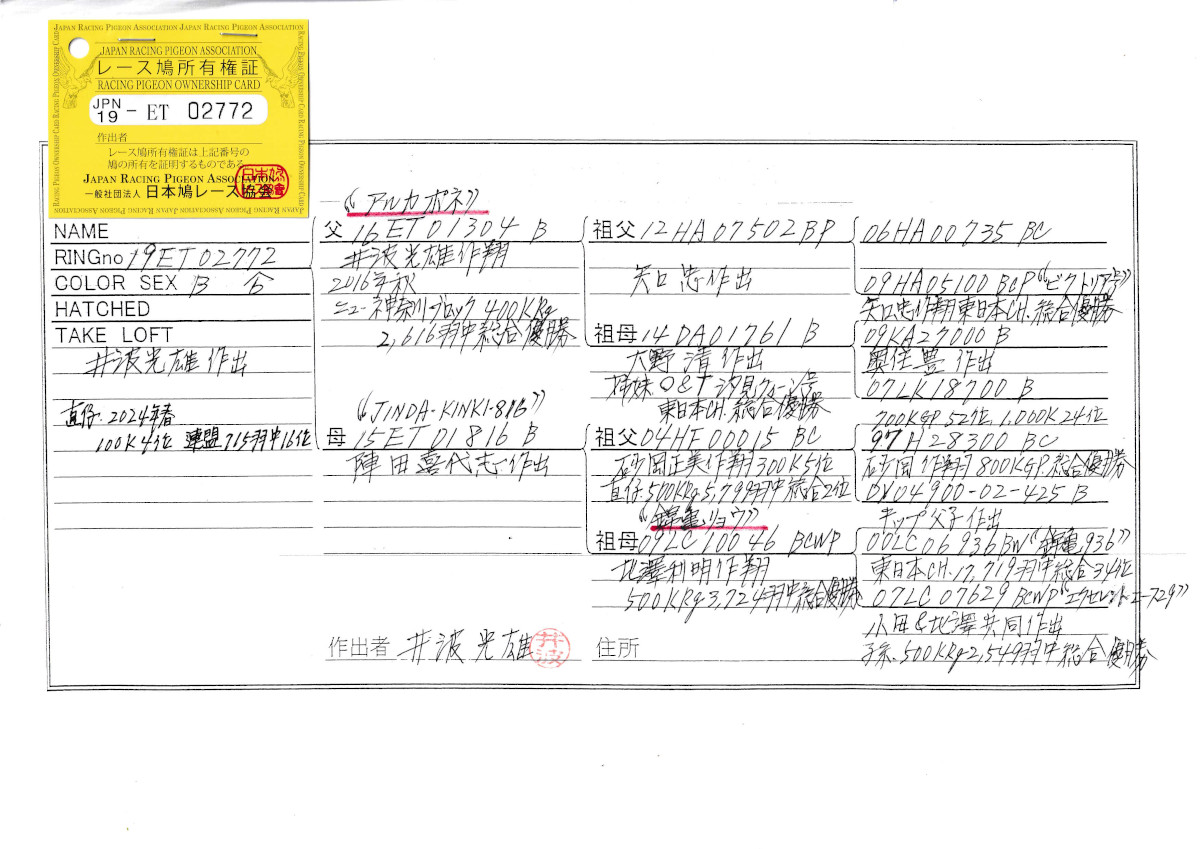 JAPAN RACING PIGEON ASSOCIATION JAPAN RACING PIGEON ASSOCIATION
JAPAN RACING PIGEON ASSOCIATION
レース鳩所有権証
RACING PIGEON OWNERSHIP CARD
JPN
19 - ET 02772
作出者
レース鳩所有権証は上記番号の
鳩の所有を証明するものである
JAPAN RACING PIGEON ASSOCIATION
一般社団法人 日本鳩レース協会
NAME
RINGno 19ET02772
COLOR SEX B 合
HATCHED
TAKE LOFT
井波光雄作出
直仔.2024年春
100K4位 連盟715羽中16位
《アルカポネ》
父 16ET01304 B
井波光雄作翔
2016年秋
ニュー神奈川ブロック 400KRg
2,616羽中総合優勝
《JINDA-KINKI-816》
母 15ET01816 B
陣田喜代志作出
作出者 井波光雄
井波
祖父 12HA07502 BP
矢口忠作出
祖母 14DA01761 B
大野清作出
姉妹 Q&T汐見クィーン号
東日本CH.総合優勝
祖父 04HF00015 BC
砂岡正美作翔300K5位
直仔.500KRg5,799羽中総合2位
《錦亀リョウ》
祖母 09LC10046 BCWP
北澤利明作翔
500KRg3,724羽中総合優勝
住所
06HA00735 BC
09HA05100 BCP
矢口忠作翔東日本CH.総合優勝
09KA27000 B
奥住豊作出
07LK18700 B
700KGP52位,1,000K24位
97H28300 BC
砂岡作翔800KGP.総合優勝
DV04900-02-425 B
キップ父子作出
00LC06936BW《錦亀936》
東日本CH.17,719羽中総合34位
07LC07629 BCWP《エクセレント.エース29》
小田&北澤共同作出
子孫.500KRg2,549羽中総合優勝